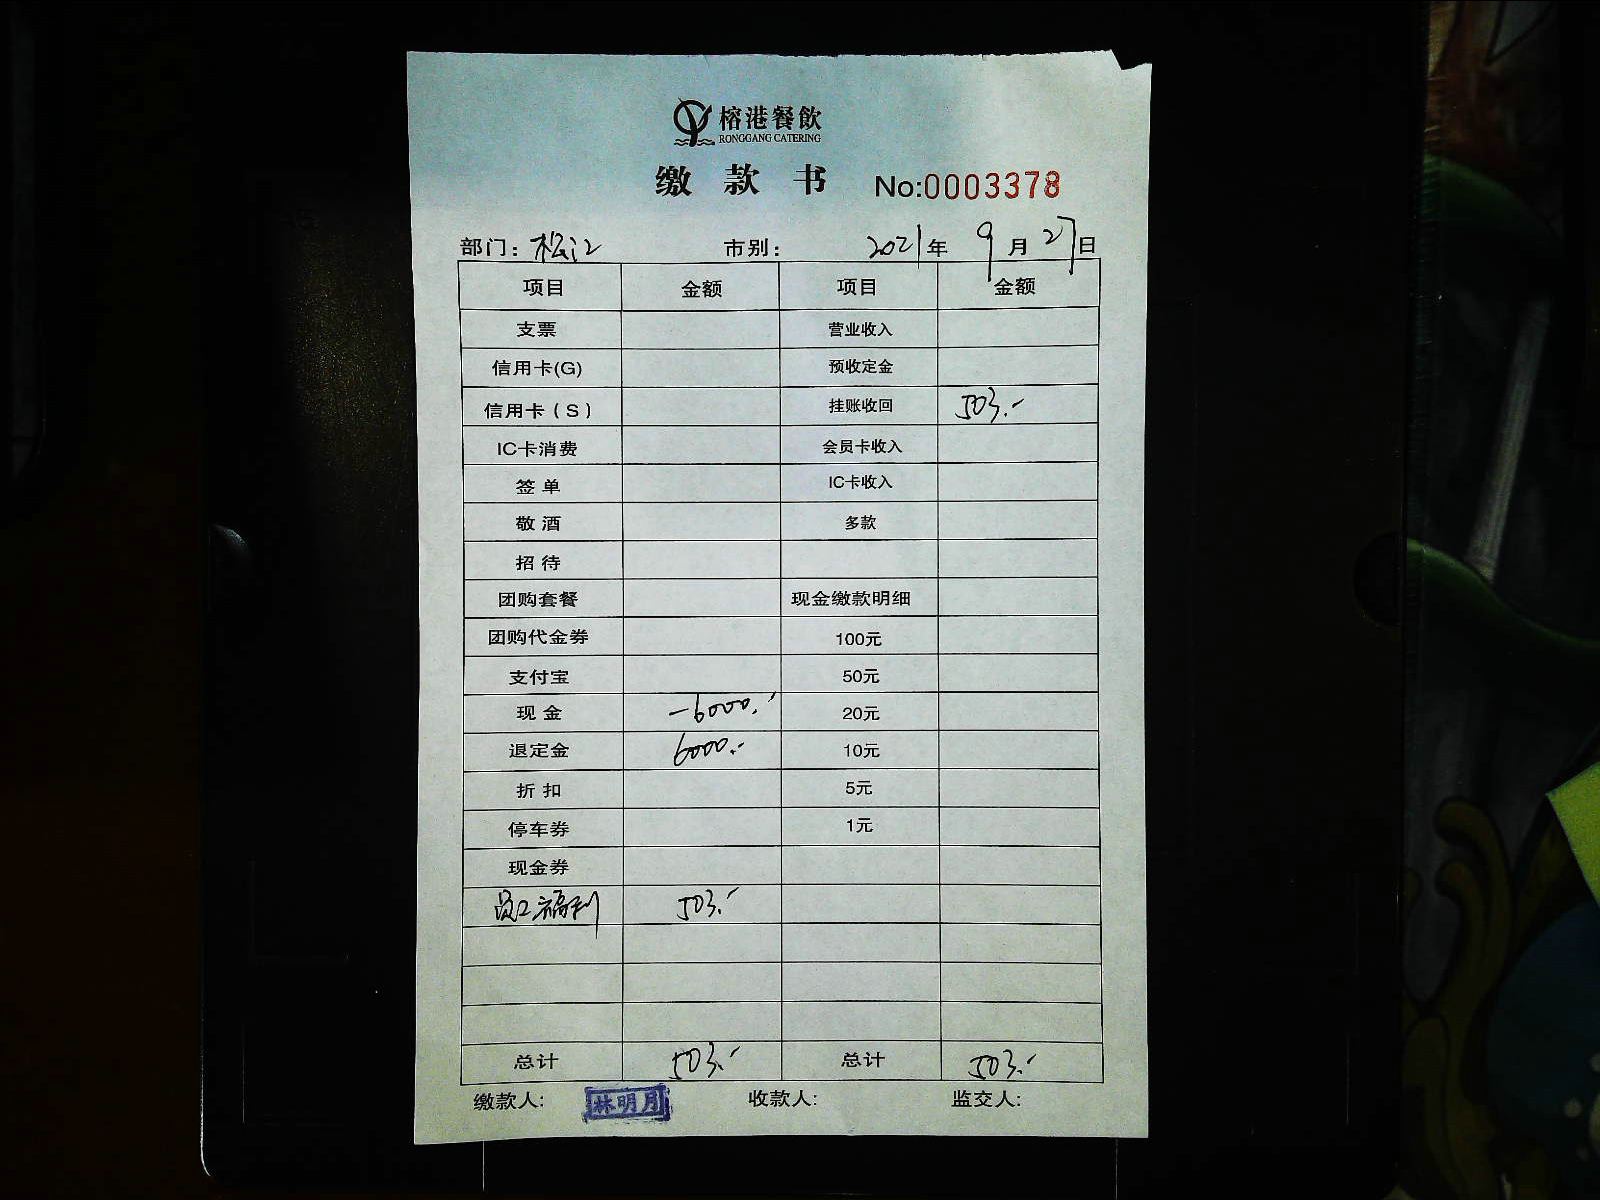 榕港餐飲
RONGGANG CATERING
缴 款 书 No:0003378
部门：松江 市别： 2021年 9月 27日
项目 金额 项目 金额
支票 营业收入
信用卡(G) 预收定金
信用卡（S） 挂账收回 503.-
IC卡消费 会员卡收入
签 单 IC卡收入
敬 酒 多款
招 待
团购套餐 现金缴款明细
团购代金券 100元
支付宝 50元
现 金 -6000.- 20元
退定金 6000.- 10元
折 扣 5元
停车券 1元
现金券
员工福利 503.-
总计 503.- 总计 503.-
缴款人: 林明月 收款人: 监交人: